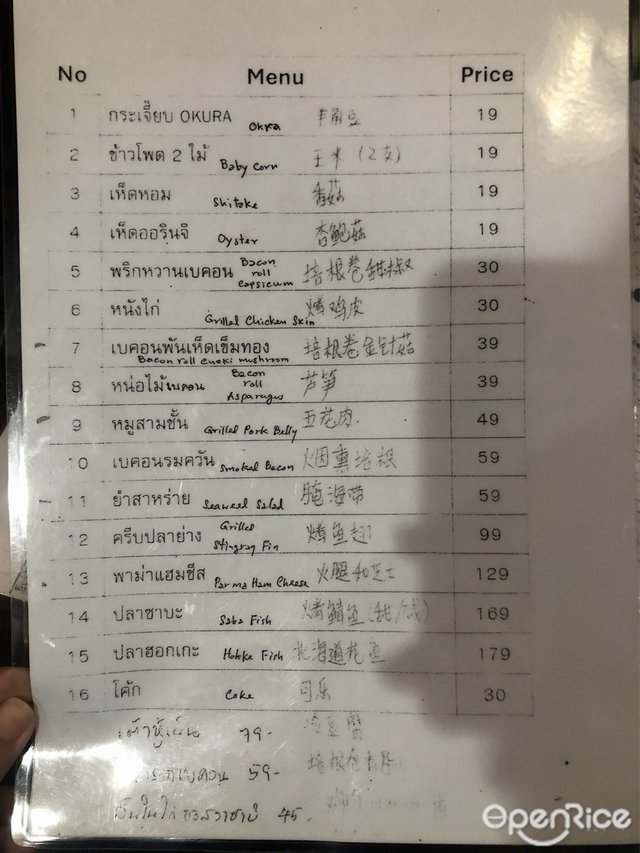 No Menu Price
1 กระเจี๊ยบ OKURA Okra 羊角豆 19
2 ข้าวโพด 2 ไม้ Baby Corn 玉米 (2支) 19
3 เห็ดหอม Shitake 香菇 19
4 เห็ดออรินจิ Oyster 杏鲍菇 19
5 พริกหวานเบคอน Bacon roll Capsicum 培根卷甜椒 30
6 หนังไก่ Grilled Chicken Skin 烤鸡皮 30
7 เบคอนพันเห็ดเข็มทอง Bacon roll enoki mushroom 培根卷金针菇 39
8 หน่อไม้เบคอน Bacon roll Asparagus 芦笋 39
9 หมูสามชั้น Grilled Pork Belly 五花肉 49
10 เบคอนรมควัน Smoked Bacon 烟熏培根 59
11 ยำสาหร่าย Seaweed Salad 腌海带 59
12 ครีบปลาย่าง Grilled Stingray Fin 烤鱼翅 99
13 พาม่าแฮมชีส Parma Ham Cheese 火腿和芝士 129
14 ปลาซาบะ Saba Fish 烤鲭鱼(甜/咸) 169
15 ปลาฮอกเกะ Hokke Fish 北海道花鱼 179
16 โค้ก Coke 可乐 30
เต้าหู้เย็น 79- 冷豆腐
เบคอน 59- 培根卷
45.
OpenRice